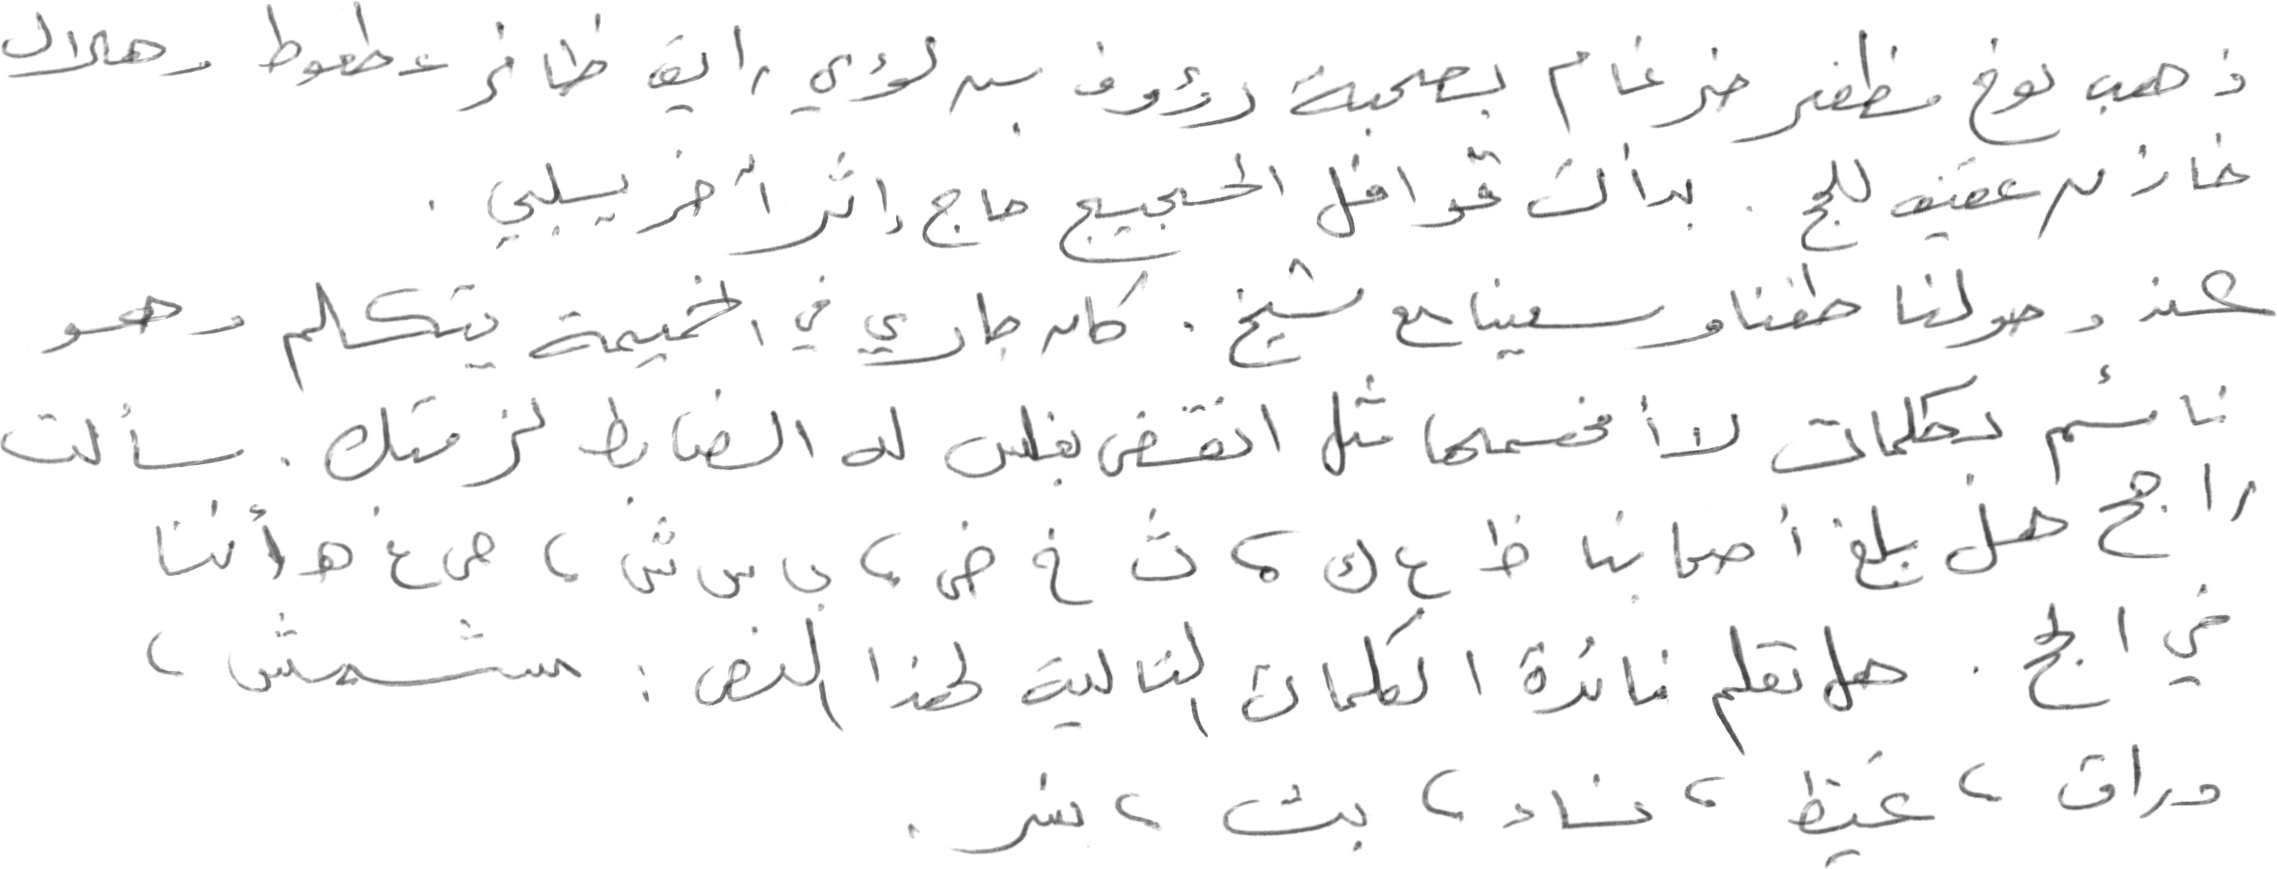 ذهب نوح مظفر ضرغام بصحبة رؤوف بن لؤي رايق ظافر عطعوط وهلال
خازن عفيف للحج . بدأت قوافل الحجيج حاج إثر أخر يسلبي .
عند وصولنا طفنا وسعينا مع شيخ . كان جاري في الخيمة يتكلم وهو
نائم بكلمات لا أفهمها مثل انقض بغلس له الضابط لزمتك . سألت
راجح هل بلغ أصحابنا ظ ع ك ، ث خ ض ، ب س ش ، ص غ ه أننا
في الحج . هل تعلم فائدة الكلمات التالية لهذا النص : مستشمش ،
وراق ، غيظ ، فساد ، بث ، بشر .